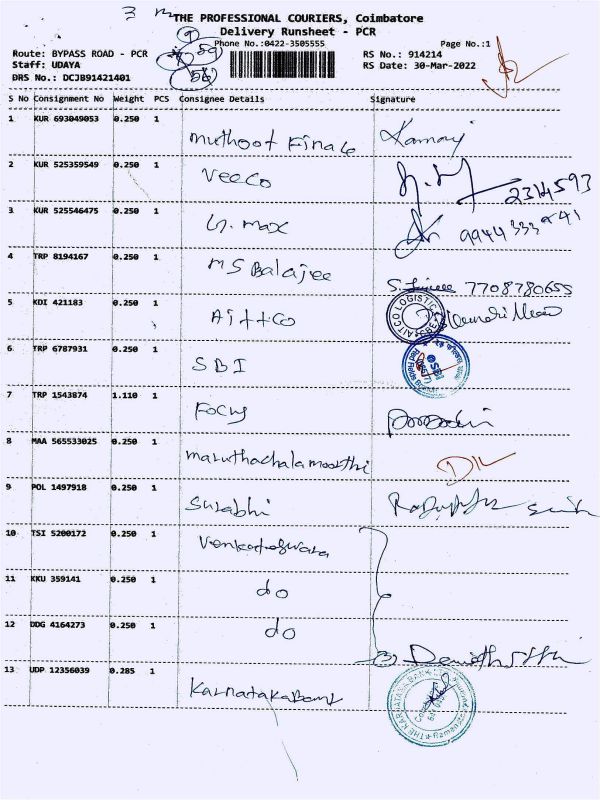 THE PROFESSIONAL COURIERS, Coimbatore
Delivery Runsheet - PCR
Phone No.:0422-3505555
Page No.:1
Route: BYPASS ROAD - PCR
RS No.: 914214
Staff: UDAYA
RS Date: 30-Mar-2022
DRS No.: DCJB91421401
S No Consignment No Weight PCS Consignee Details Signature
1 KUR 693049053 0.250 1
muthoot
2 KUR 525359549 0.250 1
Veeco 2314593
3 KUR 525546475 0.250 1
max
4 TRP 8194167 0.250 1
MS Balajee 7708780655
5 KDI 421183 0.250 1
Aittco
6 TRP 6787931 0.250 1
SBI
7 TRP 1543874 1.110 1
Focus
8 MAA 565533025 0.250 1
maruthachalamoorthi
9 POL 1497918 0.250 1
Surabhi
10 TSI 5200172 0.250 1
Venkateswara
11 KKU 359141 0.250 1
do
12 DDG 4164273 0.250 1
do
13 UDP 12356039 0.285 1
Karnataka